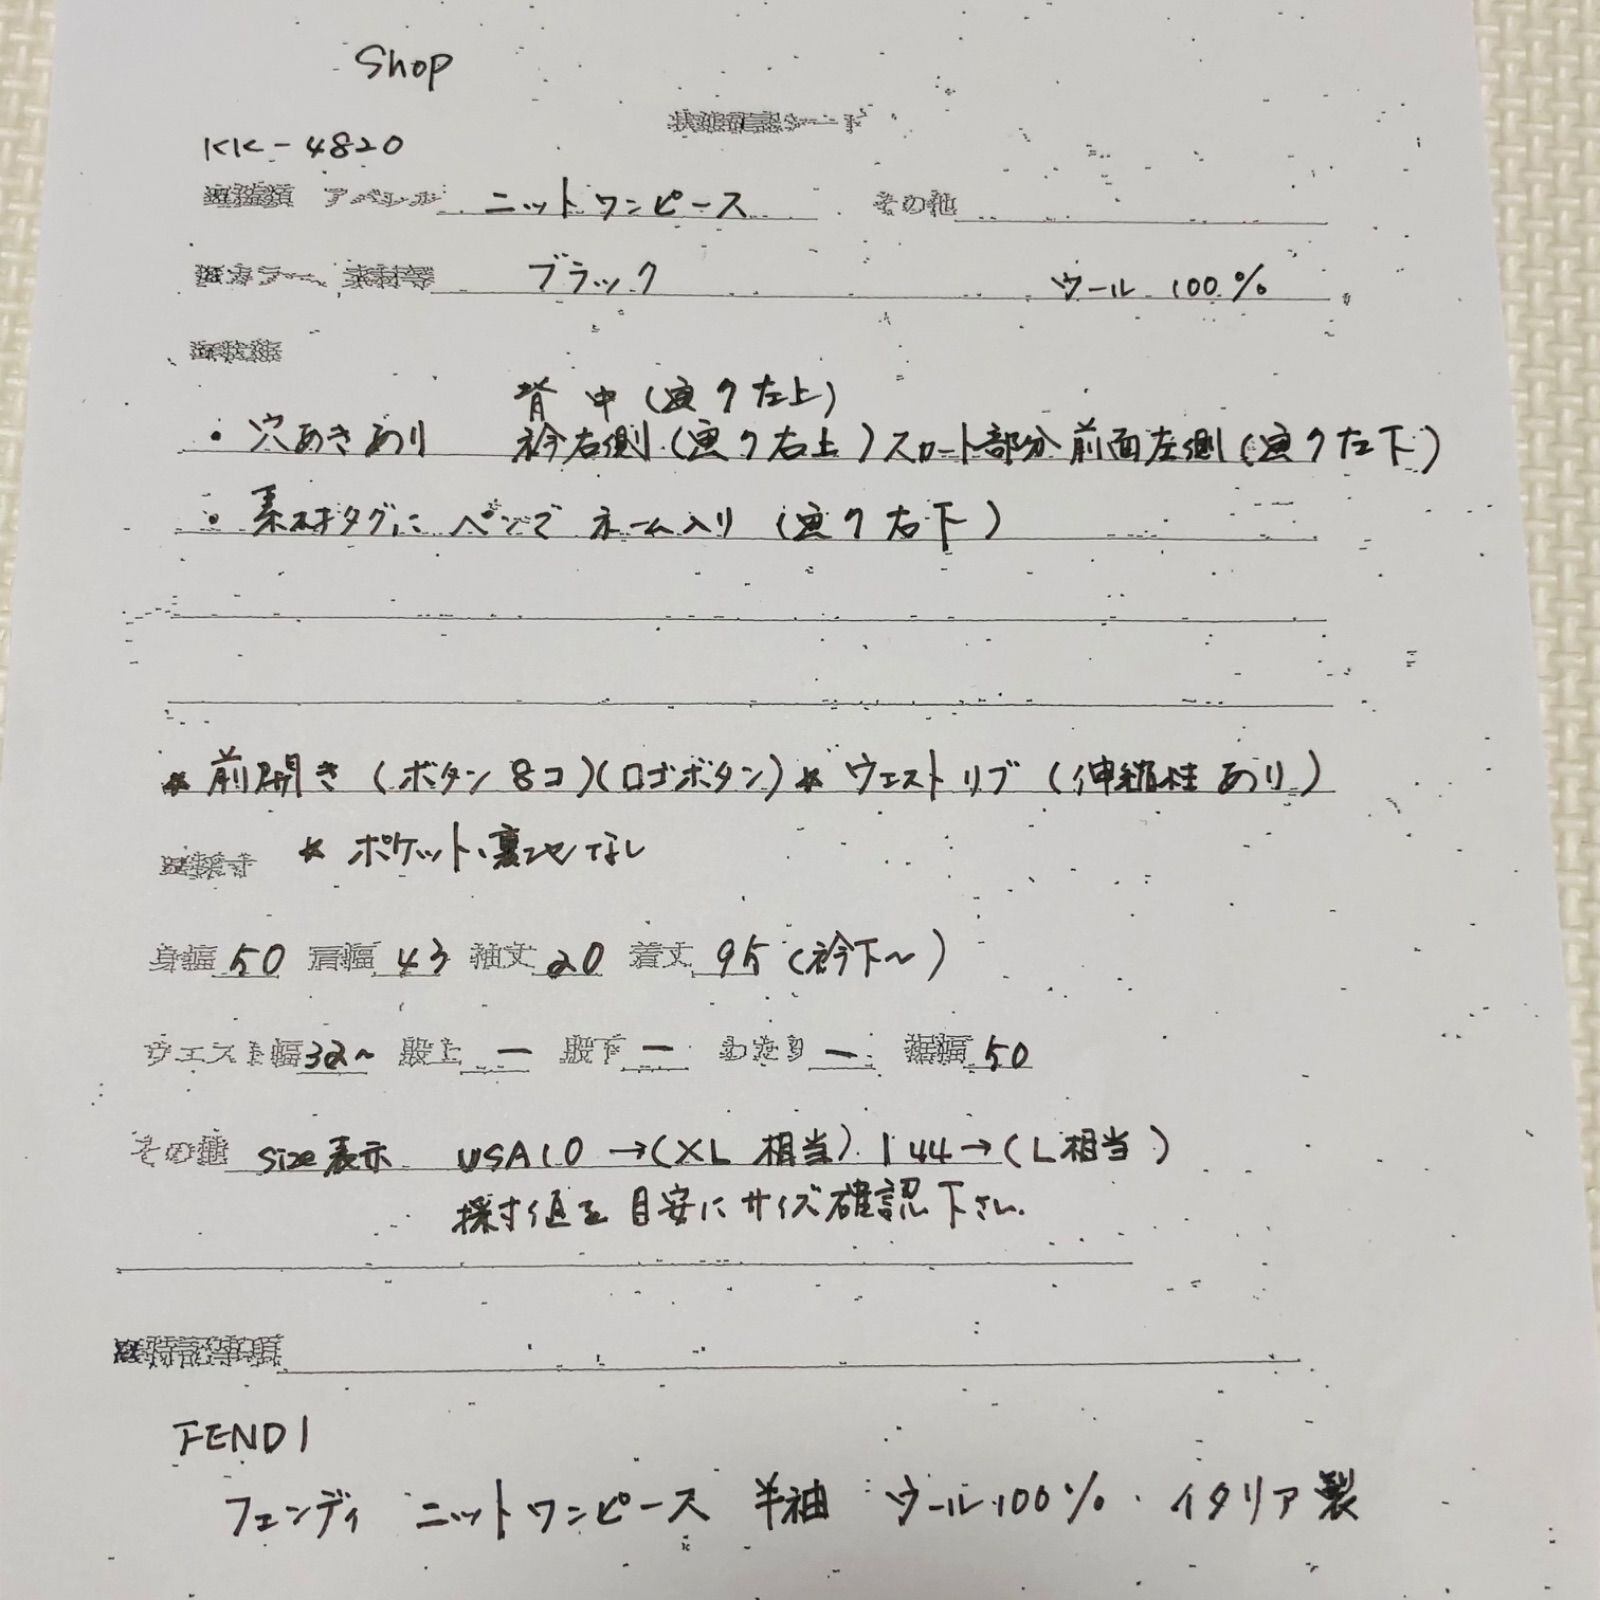 Shop
状態確認シート
KK-4820
アパレル ニットワンピース その他
カラー、素材等 ブラック ウール 100%
背中(画ク左上)
・穴あきあり 衿右側(画ク右上)スカート部分前面左側(画ク左下)
・素材タグにペンでネーム入り(画ク右下)
* 前開き(ボタン8コ)(ロゴボタン)* ウェストリブ(伸縮性あり)
* ポケット、裏地なし
採寸
身幅 50 肩幅 43 袖丈 20 着丈 95(衿下~)
ウエスト幅 32~ 股上 ー 股下 ー わたり ー 裾幅 50
その他 size表示 USA10→(XL 相当) I 44→(L相当)
採寸値を目安にサイズ確認下さい.
特記事項
FENDI
フェンディ ニットワンピース 半袖 ウール100%. イタリア製